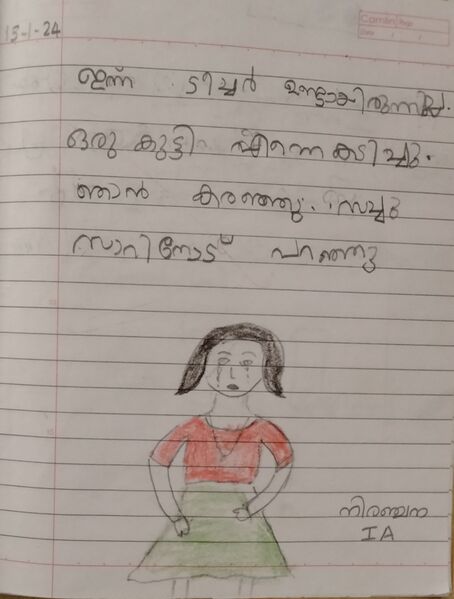 13-1-24
Camlin Page
Date / /
ഇന്ന് ടീച്ചർ ഉണ്ടായിരുന്നില്ല.
ഒരു കുട്ടി എന്നെ കടിച്ചു.
ഞാൻ കരഞ്ഞു. സച്ചു
സാറിനോട് പറഞ്ഞു
നിരഞ്ചന
I A